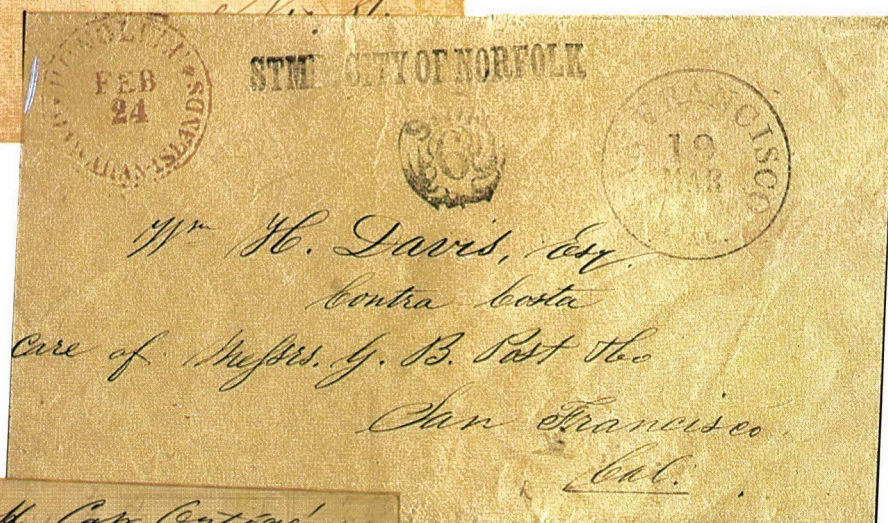 HONOLULU
FEB
24
HAWAIIAN-ISLANDS
STMR CITY OF NORFOLK
6
FRANCISCO
19
MAR
Wm H. Davis, Esq.
Contra Costa
Care of Messrs. G. B. Post & Co
San Francisco
Cal.